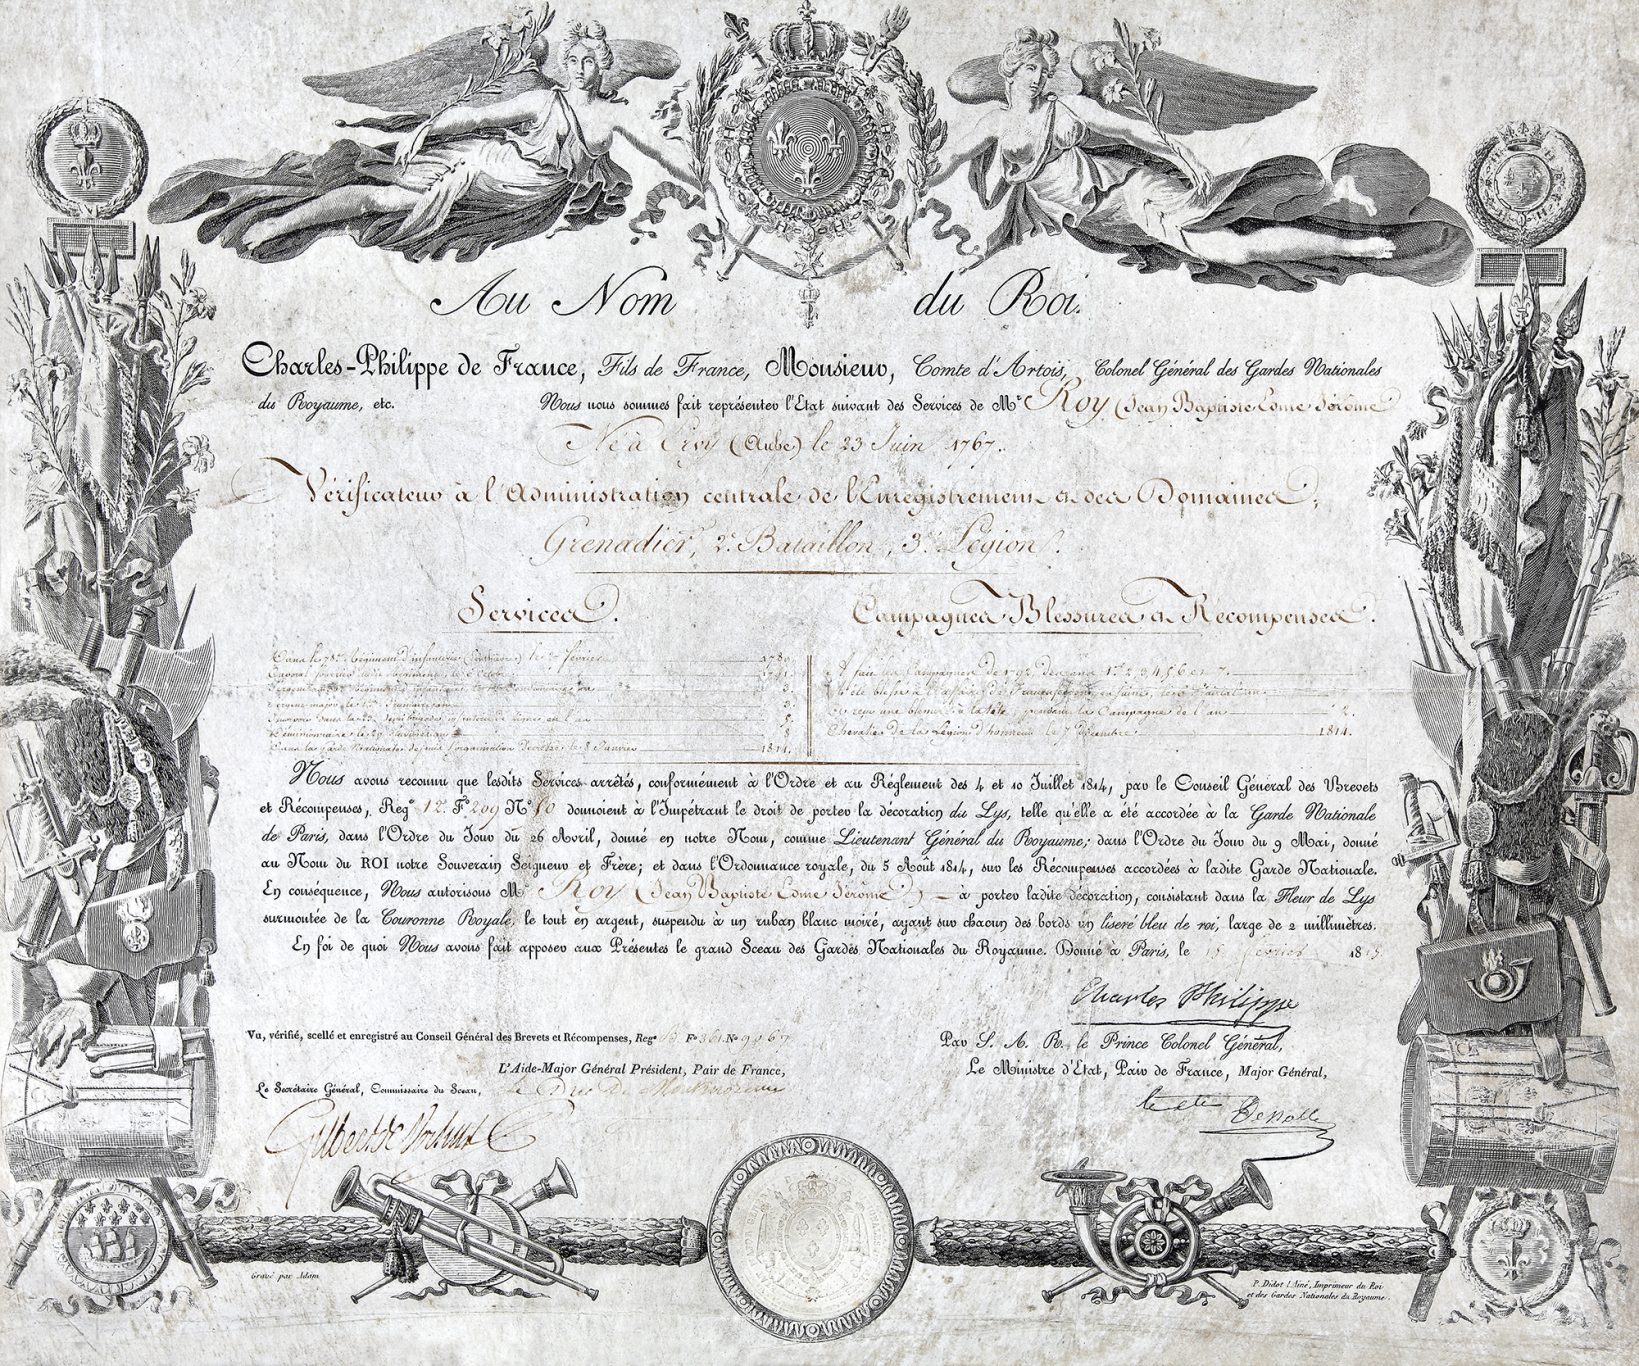 Au Nom du Roi.
Charles-Philippe de France, Fils de France, Monsieur, Comte d'Artois, Colonel Général des Gardes Nationales
du Royaume, etc. Nous nous sommes fait représenter l'Etat suivant des Services de Mr. Roy (Jean Baptiste Côme Jérôme
Né à Ervy (Aube) le 23 Juin 1767.
Vérificateur à l'Administration centrale de l'Enregistrement et des Domaines,
Grenadier, 2e. Bataillon, 3e. Légion.
Services.
Campagnes Blessures et Récompenses.
1814.
Chevalier de la Légion d'honneur le 1814.
Nous avons reconnu que lesdits Services arrêtés, conformément à l'Ordre et au Réglement des 4 et 10 Juillet 1814, par le Conseil Général des Brevets
et Récompenses, Rege 12. Fo 209 No 10 donnoient à l'Impétrant le droit de porter la décoration du Lys, telle qu'elle a été accordée à la Garde Nationale
de Paris, dans l'Ordre du Jour du 26 Avril, donné en notre Nom, comme Lieutenant Général du Royaume; dans l'Ordre du Jour du 9 Mai, donné
au Nom du ROI notre Souverain Seigneur et Frère; et dans l'Ordonnance royale, du 5 Août 1814, sur les Récompenses accordées à ladite Garde Nationale.
En conséquence, Nous autorisons Mr Roy (Jean Baptiste Côme Jérôme) à porter ladite décoration, consistant dans la Fleur de Lys
surmontée de la Couronne Royale, le tout en argent, suspendu à un ruban blanc moiré, ayant sur chacun des bords un liseré bleu de roi, large de 2 millimètres.
En foi de quoi Nous avons fait apposer aux Présentes le grand Sceau des Gardes Nationales du Royaume. Donné à Paris, le 15 février 1815.
Charles Philippe
Vu, vérifié, scellé et enregistré au Conseil Général des Brevets et Récompenses, Rege Fo 361 No 9067
Par S. A. R. le Prince Colonel Général,
L'Aide-Major Général Président, Pair de France,
Le Ministre d'Etat, Pair de France, Major Général,
Le Secrétaire Général, Commissaire du Sceau,
Le Duc De Montmorency
le cte Dessolle
Gravé par Adam
P. Didot l'Ainé, Imprimeur du Roi
et des Gardes Nationales du Royaume.